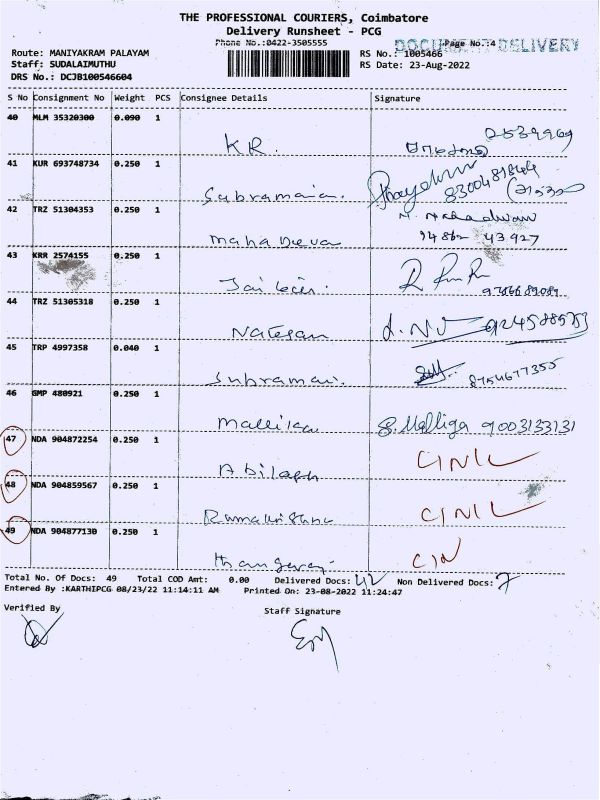 THE PROFESSIONAL COURIERS, Coimbatore
Delivery Runsheet - PCG
Phone No.:0422-3505555 Page No.:4
DOCUMENT DELIVERY
Route: MANIYAKRAM PALAYAM RS No.: 1005466
Staff: SUDALAIMUTHU RS Date: 23-Aug-2022
DRS No.: DCJB100546604
S No Consignment No Weight PCS Consignee Details Signature
40 MLM 35320300 0.090 1
K.R.
41 KUR 693748734 0.250 1
Subramaian.
42 TRZ 51304353 0.250 1
Mahadevan
43 KRR 2574155 0.250 1
44 TRZ 51305318 0.250 1
Natesan
45 TRP 4997358 0.040 1 8754677355
Subramani.
46 GMP 480921 0.250 1
Mallika S. Malliga 9003133131
47 NDA 904872254 0.250 1
48 NDA 904859567 0.250 1
Ramakrishna
49 NDA 904877130 0.250 1
Thangaraj
Total No. Of Docs: 49 Total COD Amt: 0.00 Delivered Docs: 42 Non Delivered Docs: 7
Entered By :KARTHIPCG 08/23/22 11:14:11 AM Printed On: 23-08-2022 11:24:47
Verified By Staff Signature